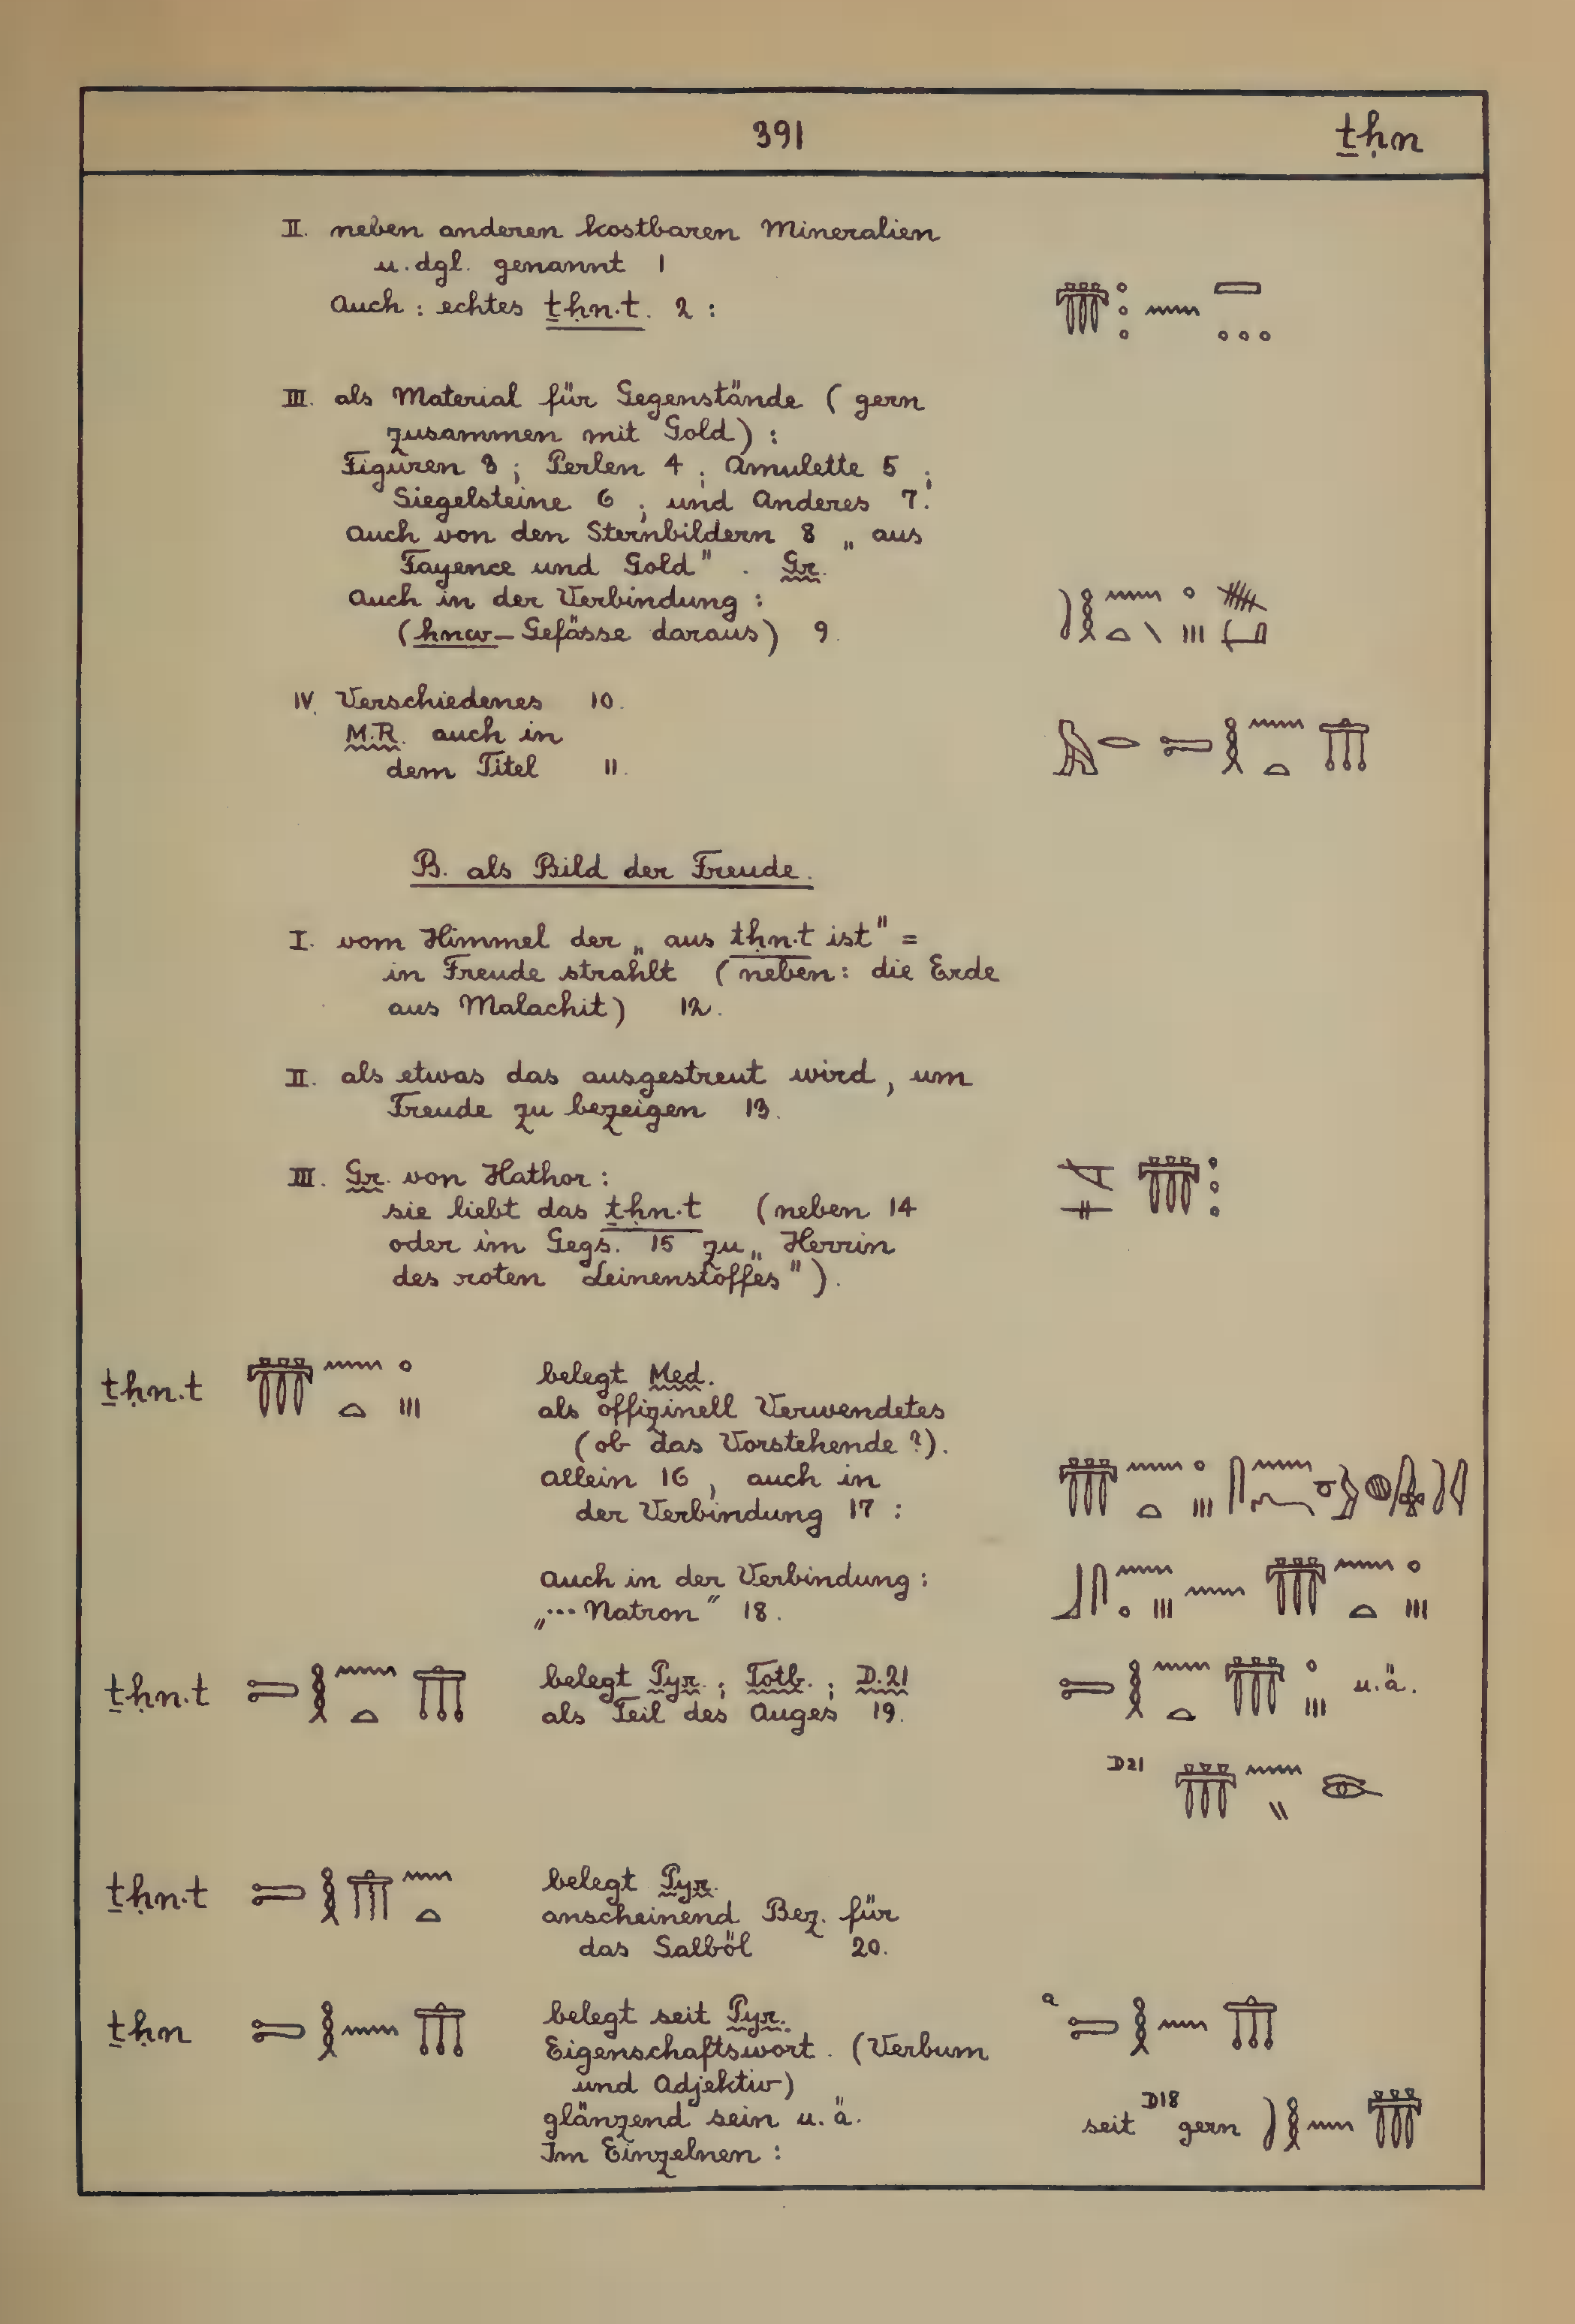 391 ṯḥn
II. neben anderen kostbaren Mineralien
u. dgl. genannt 1
Auch : echtes ṯḥn.t. 2 :
III. als Material für Gegenstände ( gern
zusammen mit Gold ) :
Figuren 3 ; Perlen 4 ; Amulette 5 ;
Siegelsteine 6 ; und Anderes 7.
Auch von den Sternbildern 8 „ aus
Fayence und Gold " . Gr.
Auch in der Verbindung :
( hnw - Gefässe daraus ) 9.
IV. Verschiedenes 10.
M.R. auch in
dem Titel 11.
B. als Bild der Freude.
I. vom Himmel der „ aus ṯḥn.t ist " =
in Freude strahlt ( neben : die Erde
aus Malachit ) 12.
II. als etwas das ausgestreut wird , um
Freude zu bezeigen 13.
III. Gr. von Hathor :
sie liebt das ṯḥn.t ( neben 14
oder im Gegs. 15 zu „ Herrin
des roten Leinenstoffes " ).
ṯḥn.t belegt Med.
als offizinell Verwendetes
( ob das Vorstehende ? ).
allein 16 , auch in
der Verbindung 17 :
Auch in der Verbindung :
„ ... Natron " 18.
ṯḥn.t belegt Pyr. ; Totb. ; D.21 u.ä.
als Teil des Auges 19.
D21
ṯḥn.t belegt Pyr.
anscheinend Bez. für
das Salböl 20.
ṯḥn belegt seit Pyr. a
Eigenschaftswort . ( Verbum
und Adjektiv )
glänzend sein u. ä. seit D18 gern
Im Einzelnen :